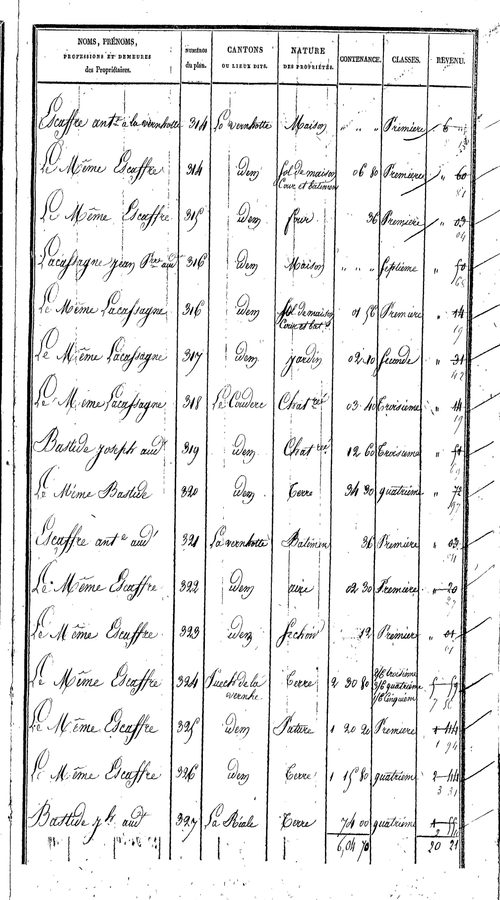 NOMS, PRÉNOMS, PROFESSIONS ET DEMEURES des Propriétaires. NUMÉROS du plan. CANTONS OU LIEUX DITS. NATURE DES PROPRIÉTÉS. CONTENANCE. CLASSES. REVENU.
Escaffre ant.e à la vernhotte 314 La vernhotte Maison " " " Première 6 "
Le Même Escaffre 314 idem sol de maison Cour et batimen 06 80 Première " 60
Le Même Escaffre 315 idem four 36 Première " 03 04
Lacassagne jean aud 316 idem Maison " " " Septieme " 50
Le Même Lacassagne 316 idem sol de maison Cour et bat. 01 56 Première " 14 19
Le Même Lacassagne 317 idem jardin 02 10 Seconde " 31 42
Le Même Lacassagne 318 Le Couderc Chat.ré 03 40 Troisieme " 14 19
Bastide joseph aud 319 idem Chat.ré 12 60 Troisieme "
Le Même Bastide 320 idem Terre 34 30 quatrième " 72 97
Escaffre ant.e aud 321 La vernhotte Batimen 36 Première " 03 04
Le Même Escaffre 322 idem aire 02 30 Première " 20 27
Le Même Escaffre 323 idem sechoir 12 Premier " 01 01
Le Même Escaffre 324 Puech de la vernhe Terre 2 30 80 troisième quatrième Cinquièm 5 59
Le Même Escaffre 325 idem Pature 1 20 20 Première 1 44 1 94
Le Même Escaffre 326 idem Terre 1 15 80 quatrième 2 44 3 31
Bastide j.h aud 327 La Riale Terre 74 00 quatrième 1 55
6,04 70 20 21